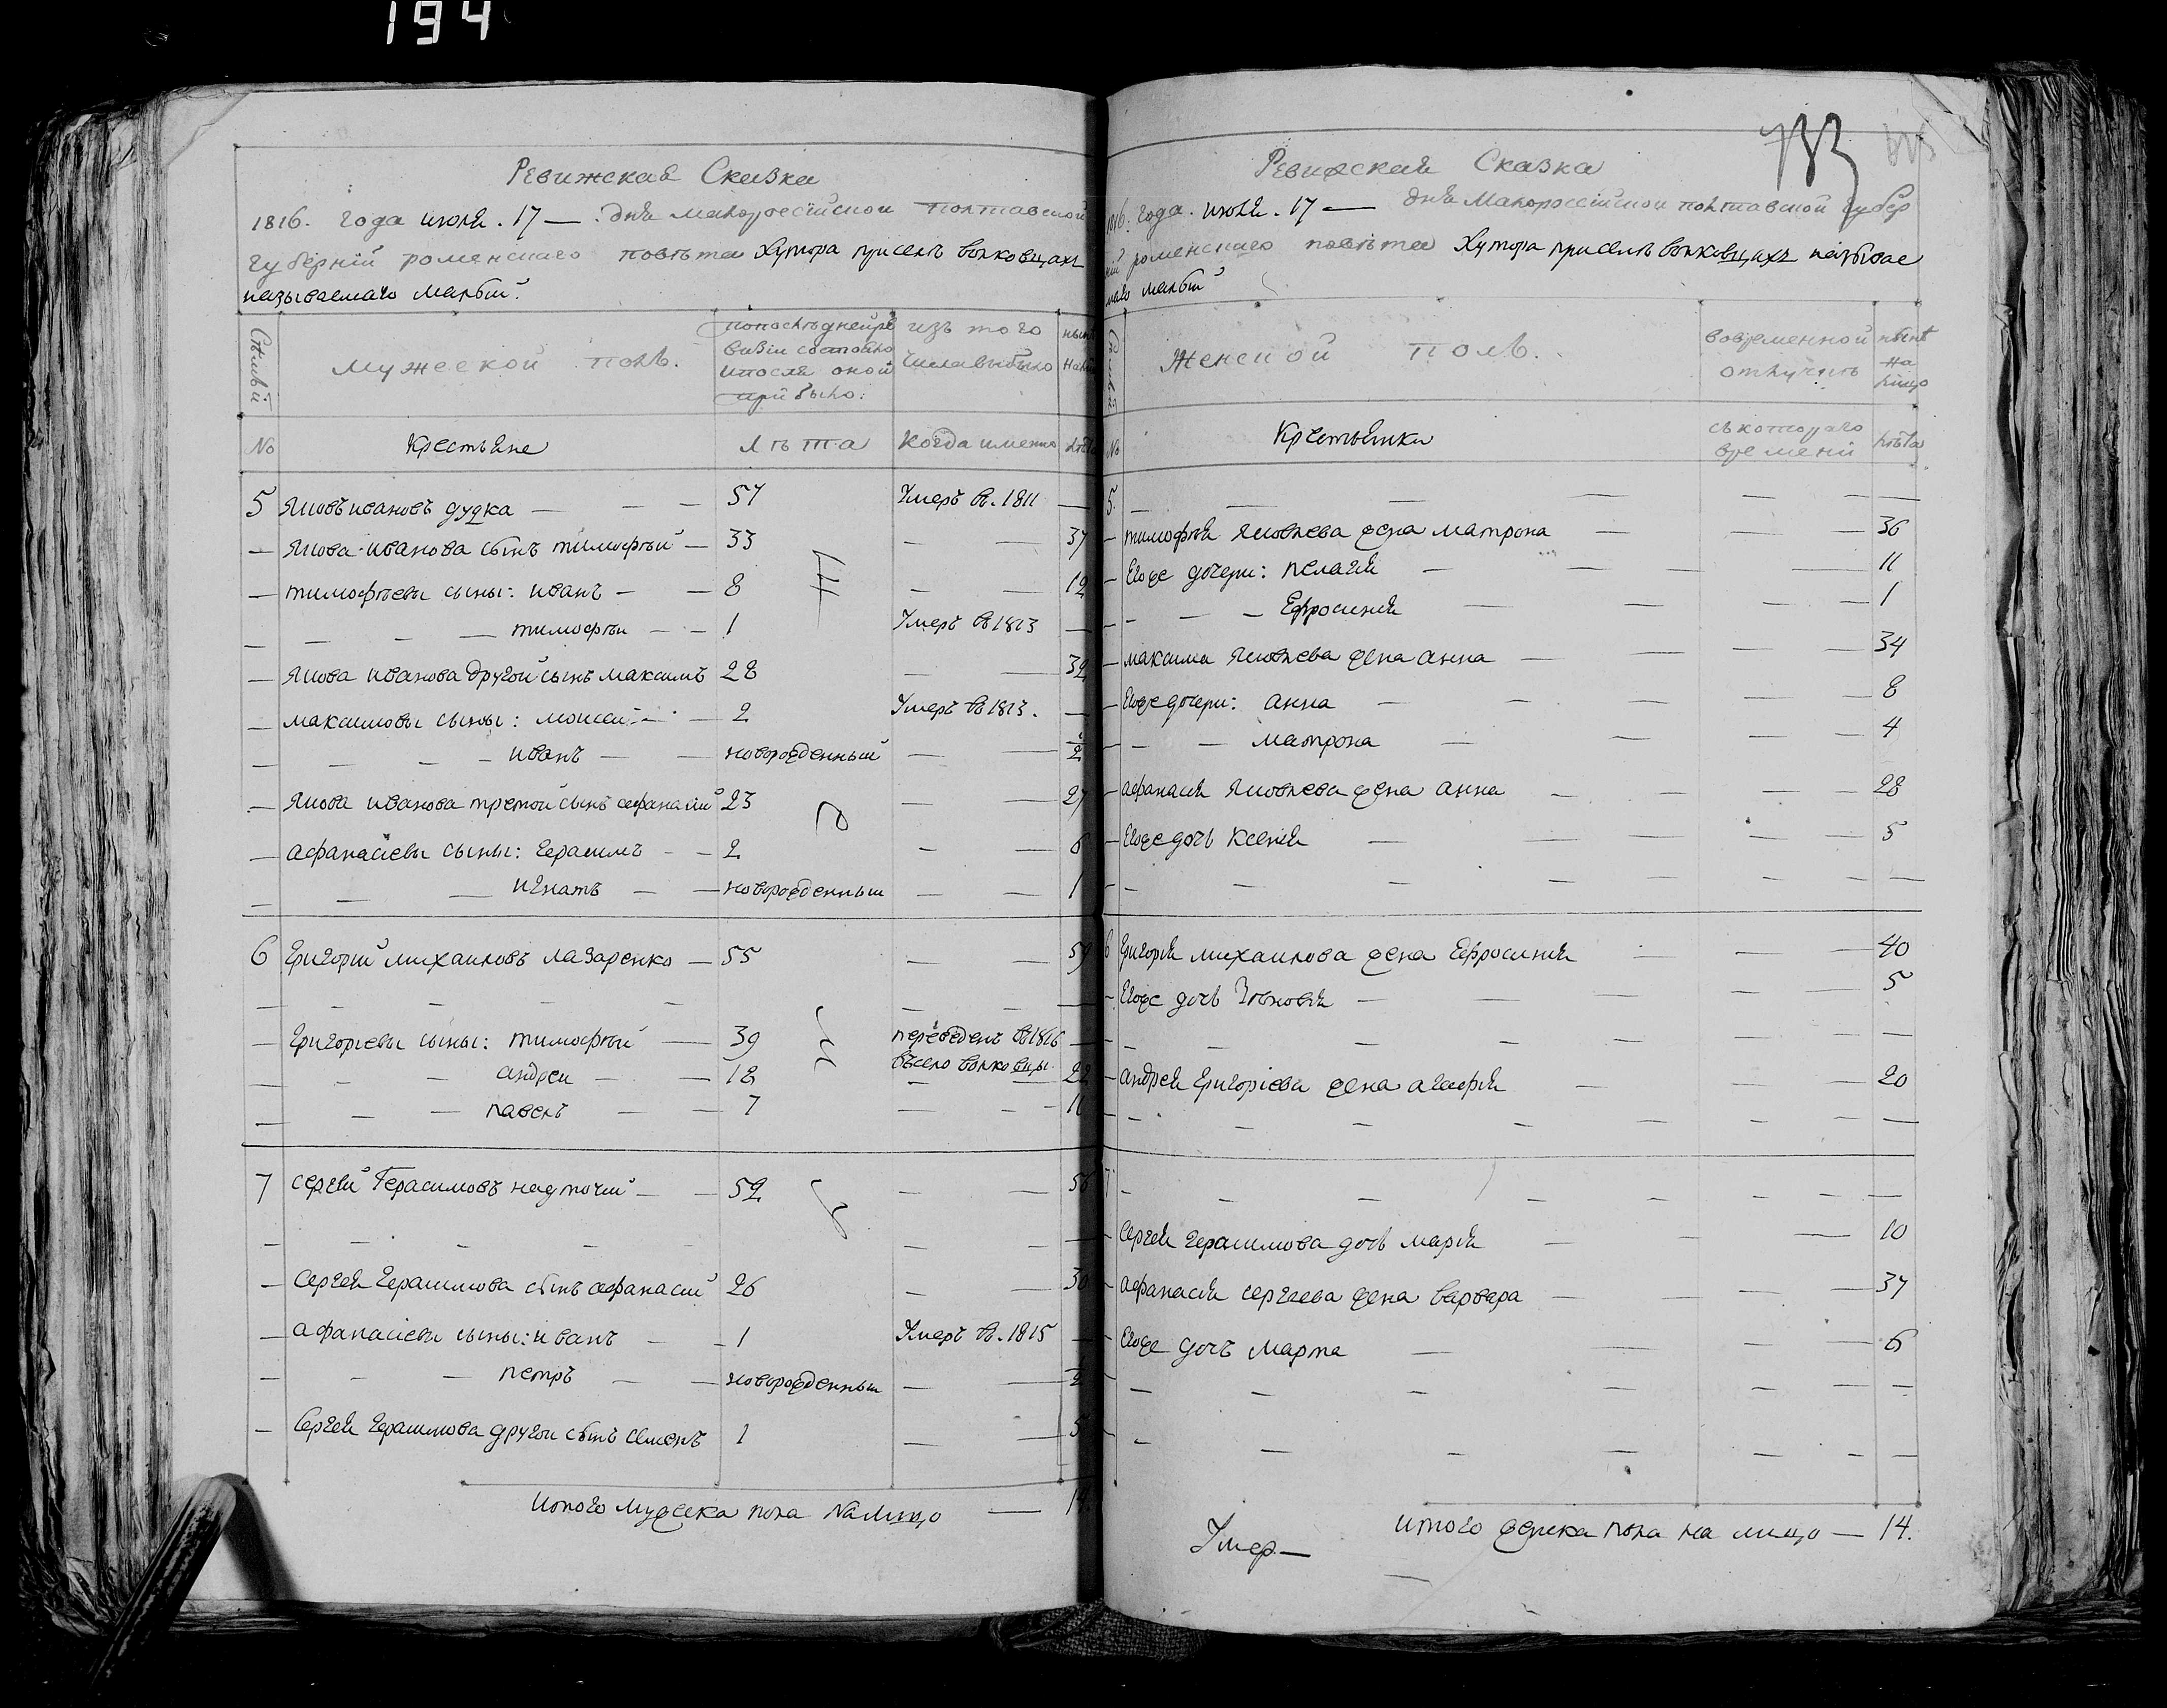 194
Ревижская Сказка
1816. года июля. 17 — дня малороссійской полтавской
губерніи роменскаго повѣта хутора присель волковцахъ
называемаго малый.
мужеской полъ.
попослѣдней ре
визіи состояло
ипосля оной
прибыло:
изъ того
числа выбыло
№ Крестьяне лѣта Когда именно
5 Яковъ ивановъ дудка — — — 57 Умеръ в. 1811 —
— Якова иванова сынъ тимофѣй — 33 — — 37
— тимофѣевы сыны: иванъ — — 8 — — 12
— — — — тимофѣи — — 1 Умеръ в 1813 —
— Якова иванова другой сынъ максимъ 28 — — 32
— максимовы сыны: моисеи — — 2 Умеръ в 1813. —
— — — — иванъ — — новорожденный — — 2
— Якова иванова третой сынъ афанасій 23 — — 27
— афанасіевы сыны: Герасимъ — — 2 — — 6
— — — игнатъ — — новорожденныи — — 1
6 Григорій михаиловъ лазаренко — 55 — — 59
— — — — — — — — —
— Григорьевы сыны: тимофѣй — 39 переведенъ в 1816 —
въ село волковцы.
— — — андреи — — 18 — — 22
— — — павелъ — — 7 — — 11
7 сергѣй Герасимовъ надточій — — 52 — — 56
— — — — — — — —
— Сергея Герасимова сынъ афанасій 26 — — 30
— афанасіевы сыны: иванъ — — 1 Умеръ в. 1815 —
— — — петръ — — новорожденныи — — 2
— Сергея Герасимова другои сынъ семенъ 1 — — 5
итого мужеска пола Налицо —
133
Ревижская Сказка
1816. года. июля. 17 — дня малороссійской полтавской губер
ніи роменскаго повѣта хутора присель волковцахъ называе
маго малый
Женской полъ.
вовременной
отлучкѣ
нынѣ
на
лицо
№ Крестьянки
съкотораго
времени
лѣта
5. — — — — — — —
— тимофѣя Яковлева жена матрона — — — 36
— Егоже дочери: пелагея — — — — 11
— — — Ефросинія — — — — 1
— максима Яковлева жена анна — — — — 34
— Егоже дочери: анна — — — — 8
— — — матрона — — — — 4
— афанасія Яковлева жена анна — — — — 28
— Егоже дочь Ксенія — — — — — 5
— — — — — — — — —
6 Григорія михаилова жена Ефросинія — — — 40
— Егоже дочь Зѣновія — — — — — 5
— — — — — — — —
— андрея Григоріева жена агафія — — 20
— — — — — — — —
7 — — — — — — — —
Сергея Герасимова дочь марія — — — 10
— афанасія сергеева жена варвара — — — — 37
— Егоже дочъ марта — — — — 6
— — — — — — — —
— — — — — — —
итого женска пола на лицо — 14.
Умер —